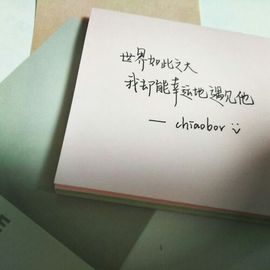 世界如此之大
我却能幸运地遇见他
— chiaobor ü